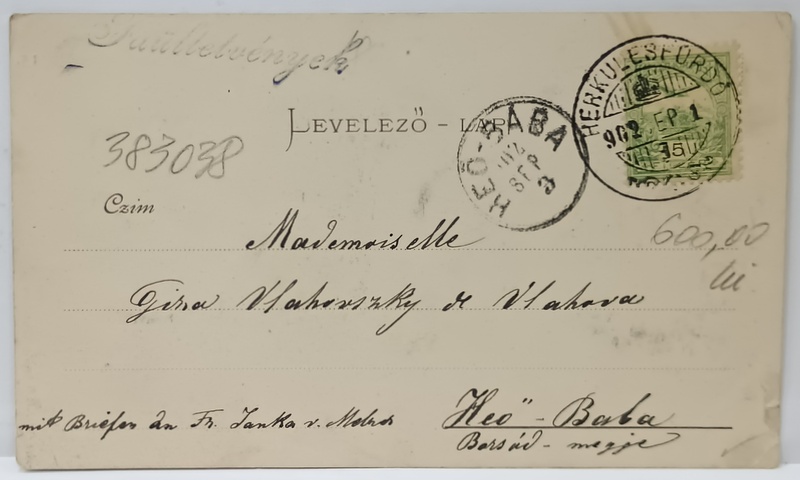 383038
LEVELEZŐ - LAP
HEŐ-BABA
902
SEP
3
HERKULESFÜRDŐ
902 SEP 1
Czim
Mademoiselle
600,00
lei
Giza Vlahovszky de Vlahova
mit Briefen an Fr. Janka v.
Heő - Baba
Borsód - megje